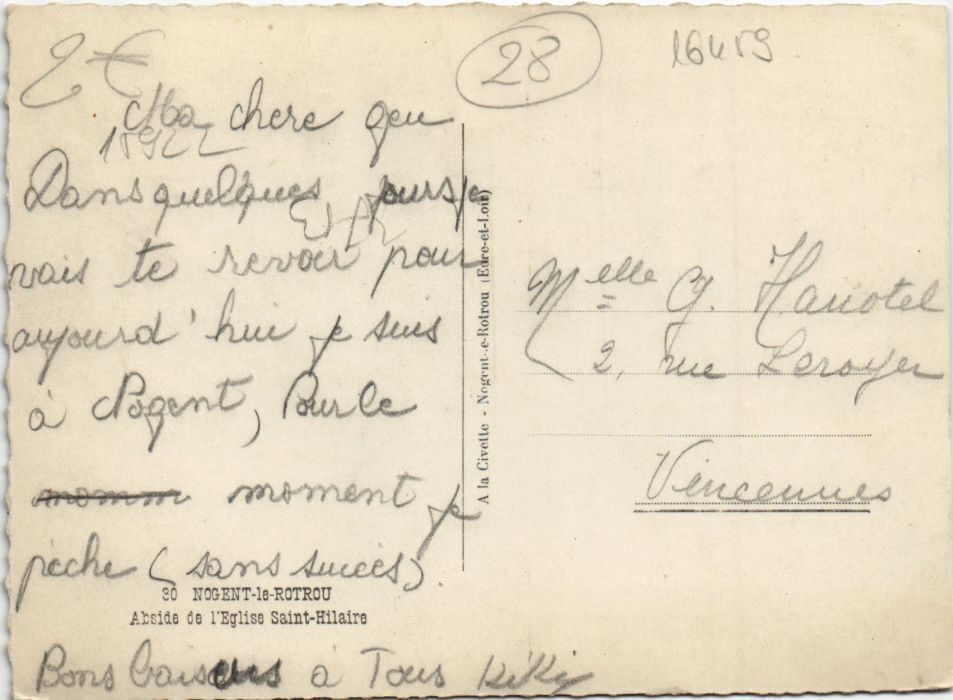 2€
28
16459
Ma chere geu
15922
Dans quelques jours je
vais te revoir pour
aujourd'hui je suis
à Nogent, Pour le
momm moment je
pèche (sans succès).
30 NOGENT-le-ROTROU
Abside de l'Eglise Saint-Hilaire
Bons baisers à Tous Kiki
A la Civette - Nogent-le-Rotrou (Eure-et-Loir)
Melle G. Hanotel
2, rue Leroyer
Vincennes